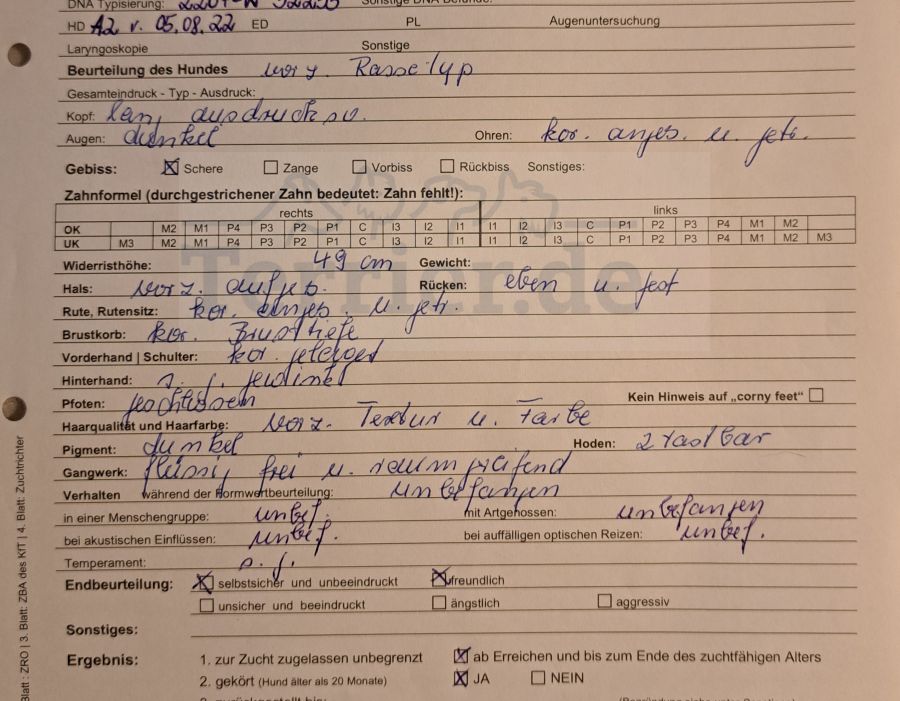 DNA Typisierung: Sonstige DNA Befunde:
HD A2 v. 05.08.22 ED PL Augenuntersuchung
Laryngoskopie Sonstige
Beurteilung des Hundes vorz. Rassetyp
Gesamteindruck - Typ - Ausdruck:
Kopf: lang, ausdrucksv.
Augen: dunkel Ohren: kor. anges. u. getr.
Gebiss: Schere Zange Vorbiss Rückbiss Sonstiges:
Zahnformel (durchgestrichener Zahn bedeutet: Zahn fehlt!):
rechts links
OK M2 M1 P4 P3 P2 P1 C I3 I2 I1 I1 I2 I3 C P1 P2 P3 P4 M1 M2
UK M3 M2 M1 P4 P3 P2 P1 C I3 I2 I1 I1 I2 I3 C P1 P2 P3 P4 M1 M2 M3
Terrier.de
Widerristhöhe: 49 cm Gewicht:
Hals: vorz. aufges. Rücken: eben u. fest
Rute, Rutensitz: kor. anges. u. getr.
Brustkorb: kor. Brusttiefe
Vorderhand | Schulter: kor. gelagert
Hinterhand: s. g. gewinkelt
Pfoten: geschlossen Kein Hinweis auf „corny feet"
Haarqualität und Haarfarbe: vorz. Textur u. Farbe
Pigment: dunkel Hoden: 2 tastbar
Gangwerk: flüssig, frei u. raumgreifend
Verhalten während der Formwertbeurteilung: unbefangen
in einer Menschengruppe: unbef. mit Artgenossen: unbefangen
bei akustischen Einflüssen: unbef. bei auffälligen optischen Reizen: unbef.
Temperament: s. g.
Endbeurteilung: selbstsicher und unbeeindruckt freundlich
unsicher und beeindruckt ängstlich aggressiv
Sonstiges:
Ergebnis: 1. zur Zucht zugelassen unbegrenzt ab Erreichen und bis zum Ende des zuchtfähigen Alters
2. gekört (Hund älter als 20 Monate) JA NEIN
Blatt : ZRO | 3. Blatt: ZBA des KfT | 4. Blatt: Zuchtrichter